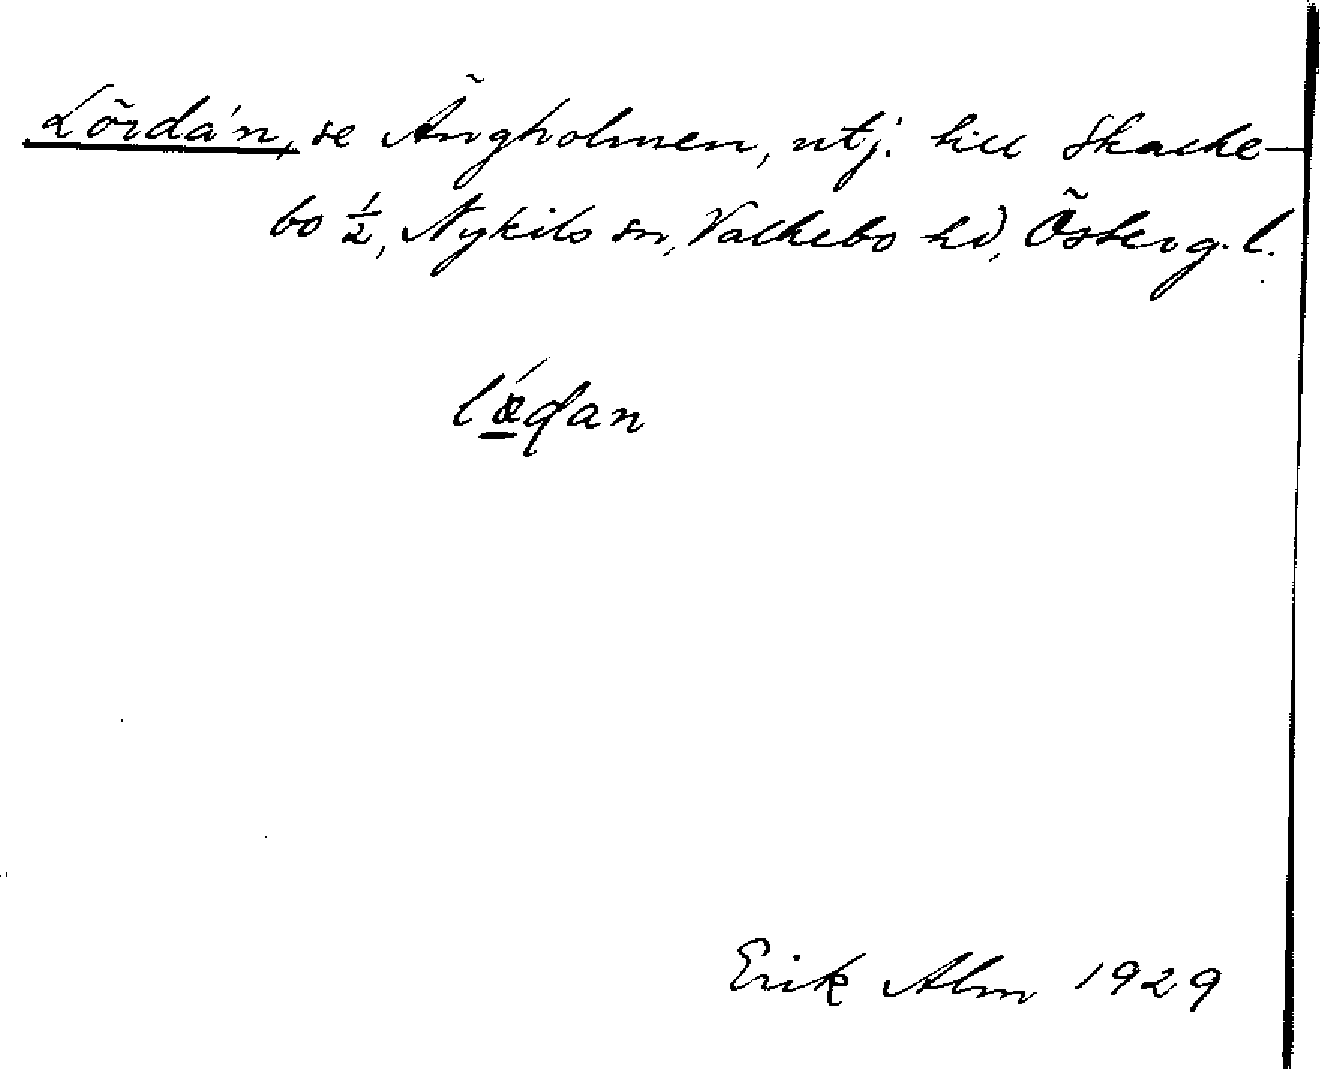 Lörda'n, se Ängholmen, utj. till Skacke-
bo ½, Nykils sn, Valkebo hd, Österg. l.
Erik Alm 1929